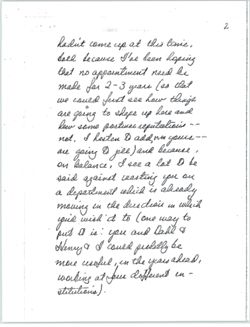 2
hadn't come up at this time,
both because I've been hoping
that no appointment need be
made for 2-3 years (so that
we could first see how things
are going to shape up here and
how some partner reputations --
not, I hasten to add, yours --
are going to jell) and because,
on balance, I see a lot to be
said against wasting you on
a department which is already
moving in the direction in which
you'd wish it to (one way to
put it is: you and Dahl &
Henry & I could probably be
more useful, in the years ahead,
working at four different in-
stitutions).